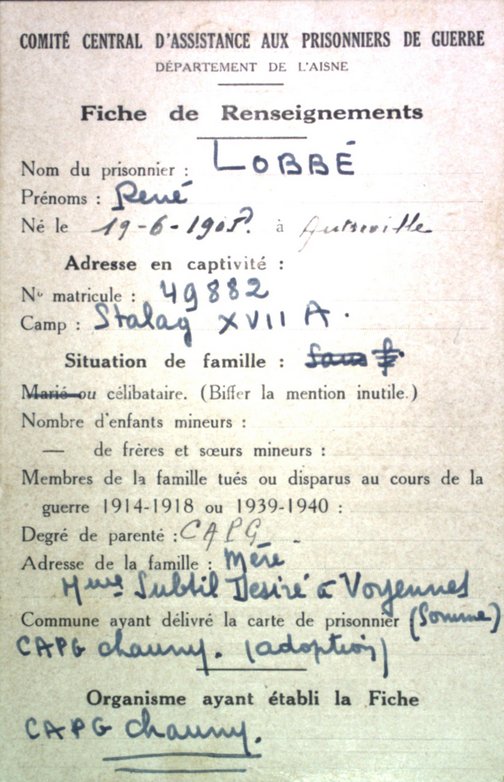 COMITÉ CENTRAL D'ASSISTANCE AUX PRISONNIERS DE GUERRE
DÉPARTEMENT DE L'AISNE
Fiche de Renseignements
Nom du prisonnier : LOBBÉ
Prénoms : René
Né le 19-6-1905? à
Adresse en captivité :
No matricule : 49882
Camp : Stalag XVII A.
Situation de famille : Sans f.
Marié ou célibataire. (Biffer la mention inutile.)
Nombre d'enfants mineurs :
— de frères et sœurs mineurs :
Membres de la famille tués ou disparus au cours de la
guerre 1914-1918 ou 1939-1940 :
Degré de parenté : CAPG -
Adresse de la famille : Mère
Mme Subtil Desiré à Voyennes
Commune ayant délivré la carte de prisonnier (Somme)
CAPG chauny. (adoption)
Organisme ayant établi la Fiche
CAPG chauny.